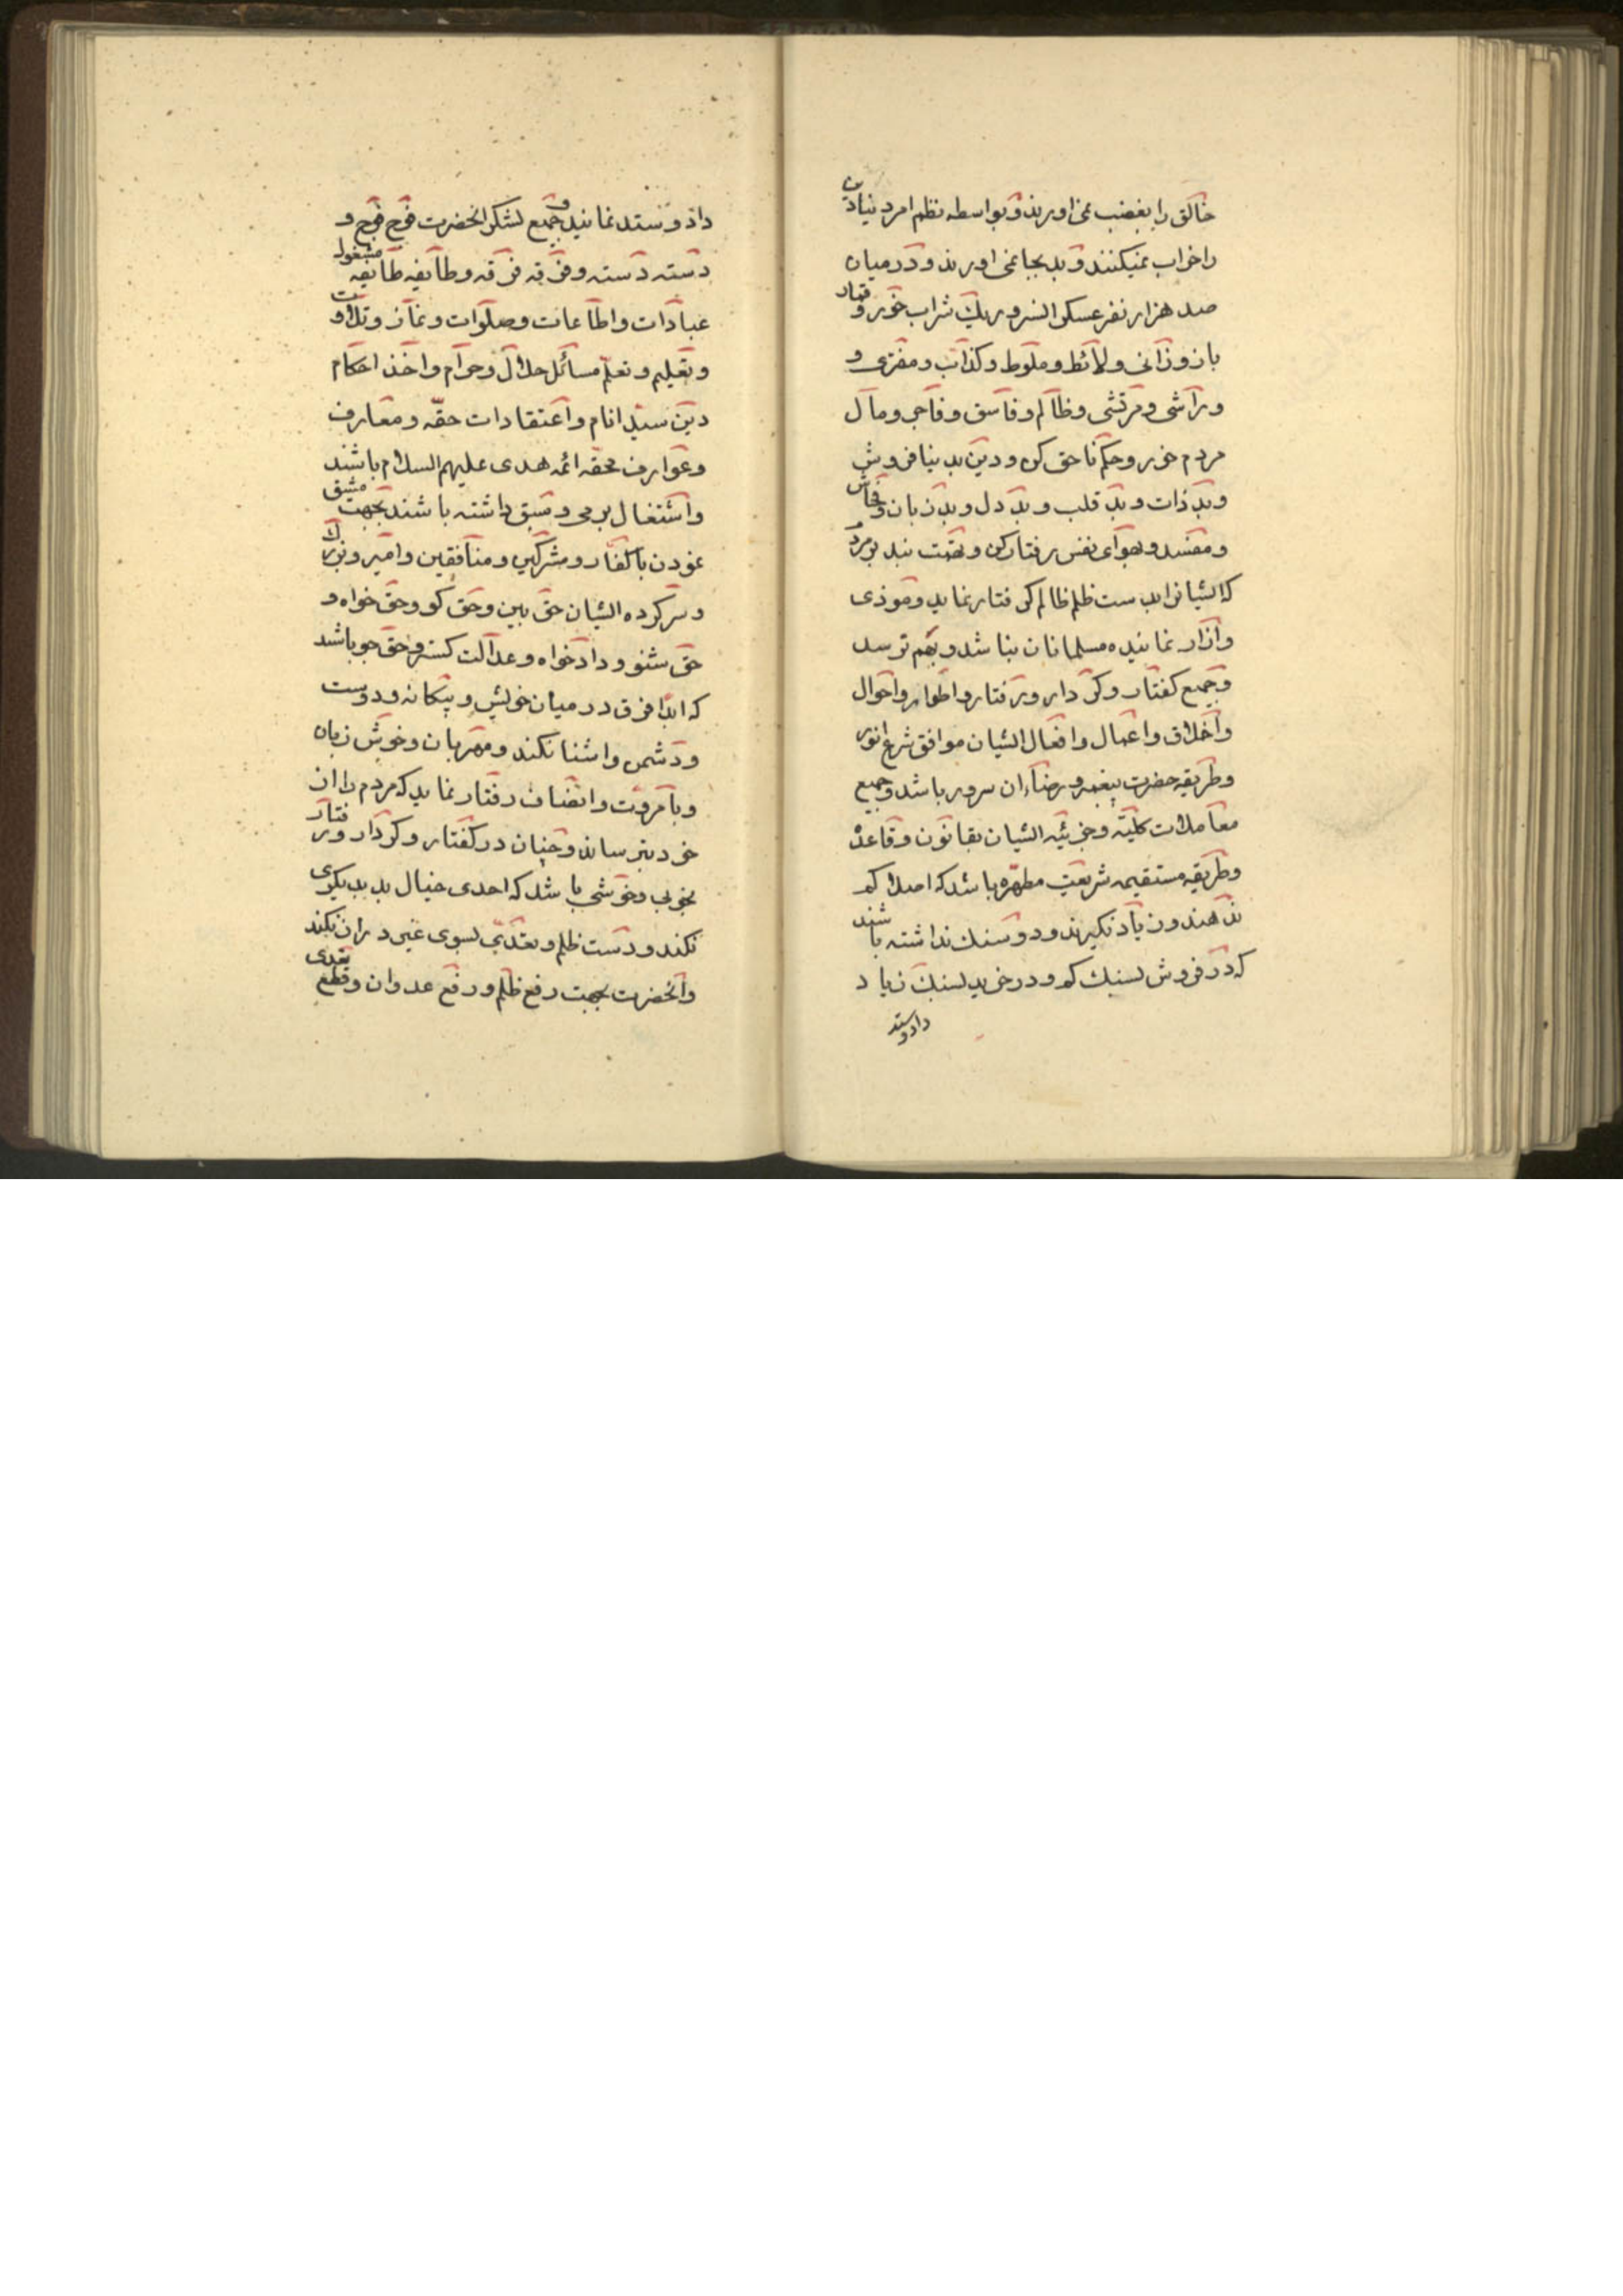 خالق را بغضب نمی‌اورند و بواسطه نظم امر دنیا دین
را خراب نمیکنند و بد بجا نمی‌اورند و در میان
صد هزار نفر عسکر السرور یک شراب خور و قمار
باز و زانی و لائط و ملوط و کذاب و مفتری و
و راشی و مرتشی و ظالم و فاسق و فاجر و مال
مردم خور و حکم ناحق کن و دین بدنیا فروش
و بد ذات و بد قلب و بد دل و بد زبان و فحاش
و مفسد و بهوای نفس رفتار کن و تهمت بند بر مردم
که ایشانرا بدست ظلم ظالم گرفتار نماید و موذی
و ازار نماینده مسلمانان نباشد و بهم نرسد
و جمیع کفتار و کردار و رفتار و اطوار و احوال
و اخلاق و اعمال و افعال ایشان موافق شرع انور
و طریقه حضرت پیغمبر و رضاء ان سرور باشد و جمیع
معاملات کلیّه و جزئیّه ایشان بقانون و قاعدهٔ
و طریقه مستقیمه شریعت مطهّره باشد که اصلا کم
ندهند و زیاد نکیرند و دو سنک نداشته باشند
که در فروش بسنک کم و در خرید بسنک زیاد
داد و ستد
داد و ستد نمایند و جمیع لشکر انحضرت فوج فوج و
دسته دسته و فرقه فرقه و طایفه طایفه مشغول
عبادات و اطاعات و صلوات و نماز و تلاوت
و تعلیم و تعلّم مسائل حلال و حرام و اخذ احکام
دین سیّد انام و اعتقادات حقّه و معارف
و عوارف محقّه ائمه هدی علیهم السلام باشند
و اشتغال برمی و سبق داشته باشند بجهت مشق
نمودن با کفّار و مشرکین و منافقین و امیر و بزرک
و سر کرده ایشان حق بین و حق کو و حق خواه و
حق شنو و دادخواه و عدالت کستر و حق جو باشد
که ابدًا فرق در میان خویش و بیکانه و دوست
و دشمن و اشنا نکند و مهربان و خوش زبان
و با مروّت و انصاف رفتار نماید که مردم را از
خود نترساند و چنان در کفتار و کردار و رفتار
بخوبی و خوشی باشد که احدی خیال بد بدیکری
نکند و دست ظلم و تعدّی بسوی غیر دراز نکند
و انحضرت بجهت رفع ظلم و رفع عدوان و قطع تعدی